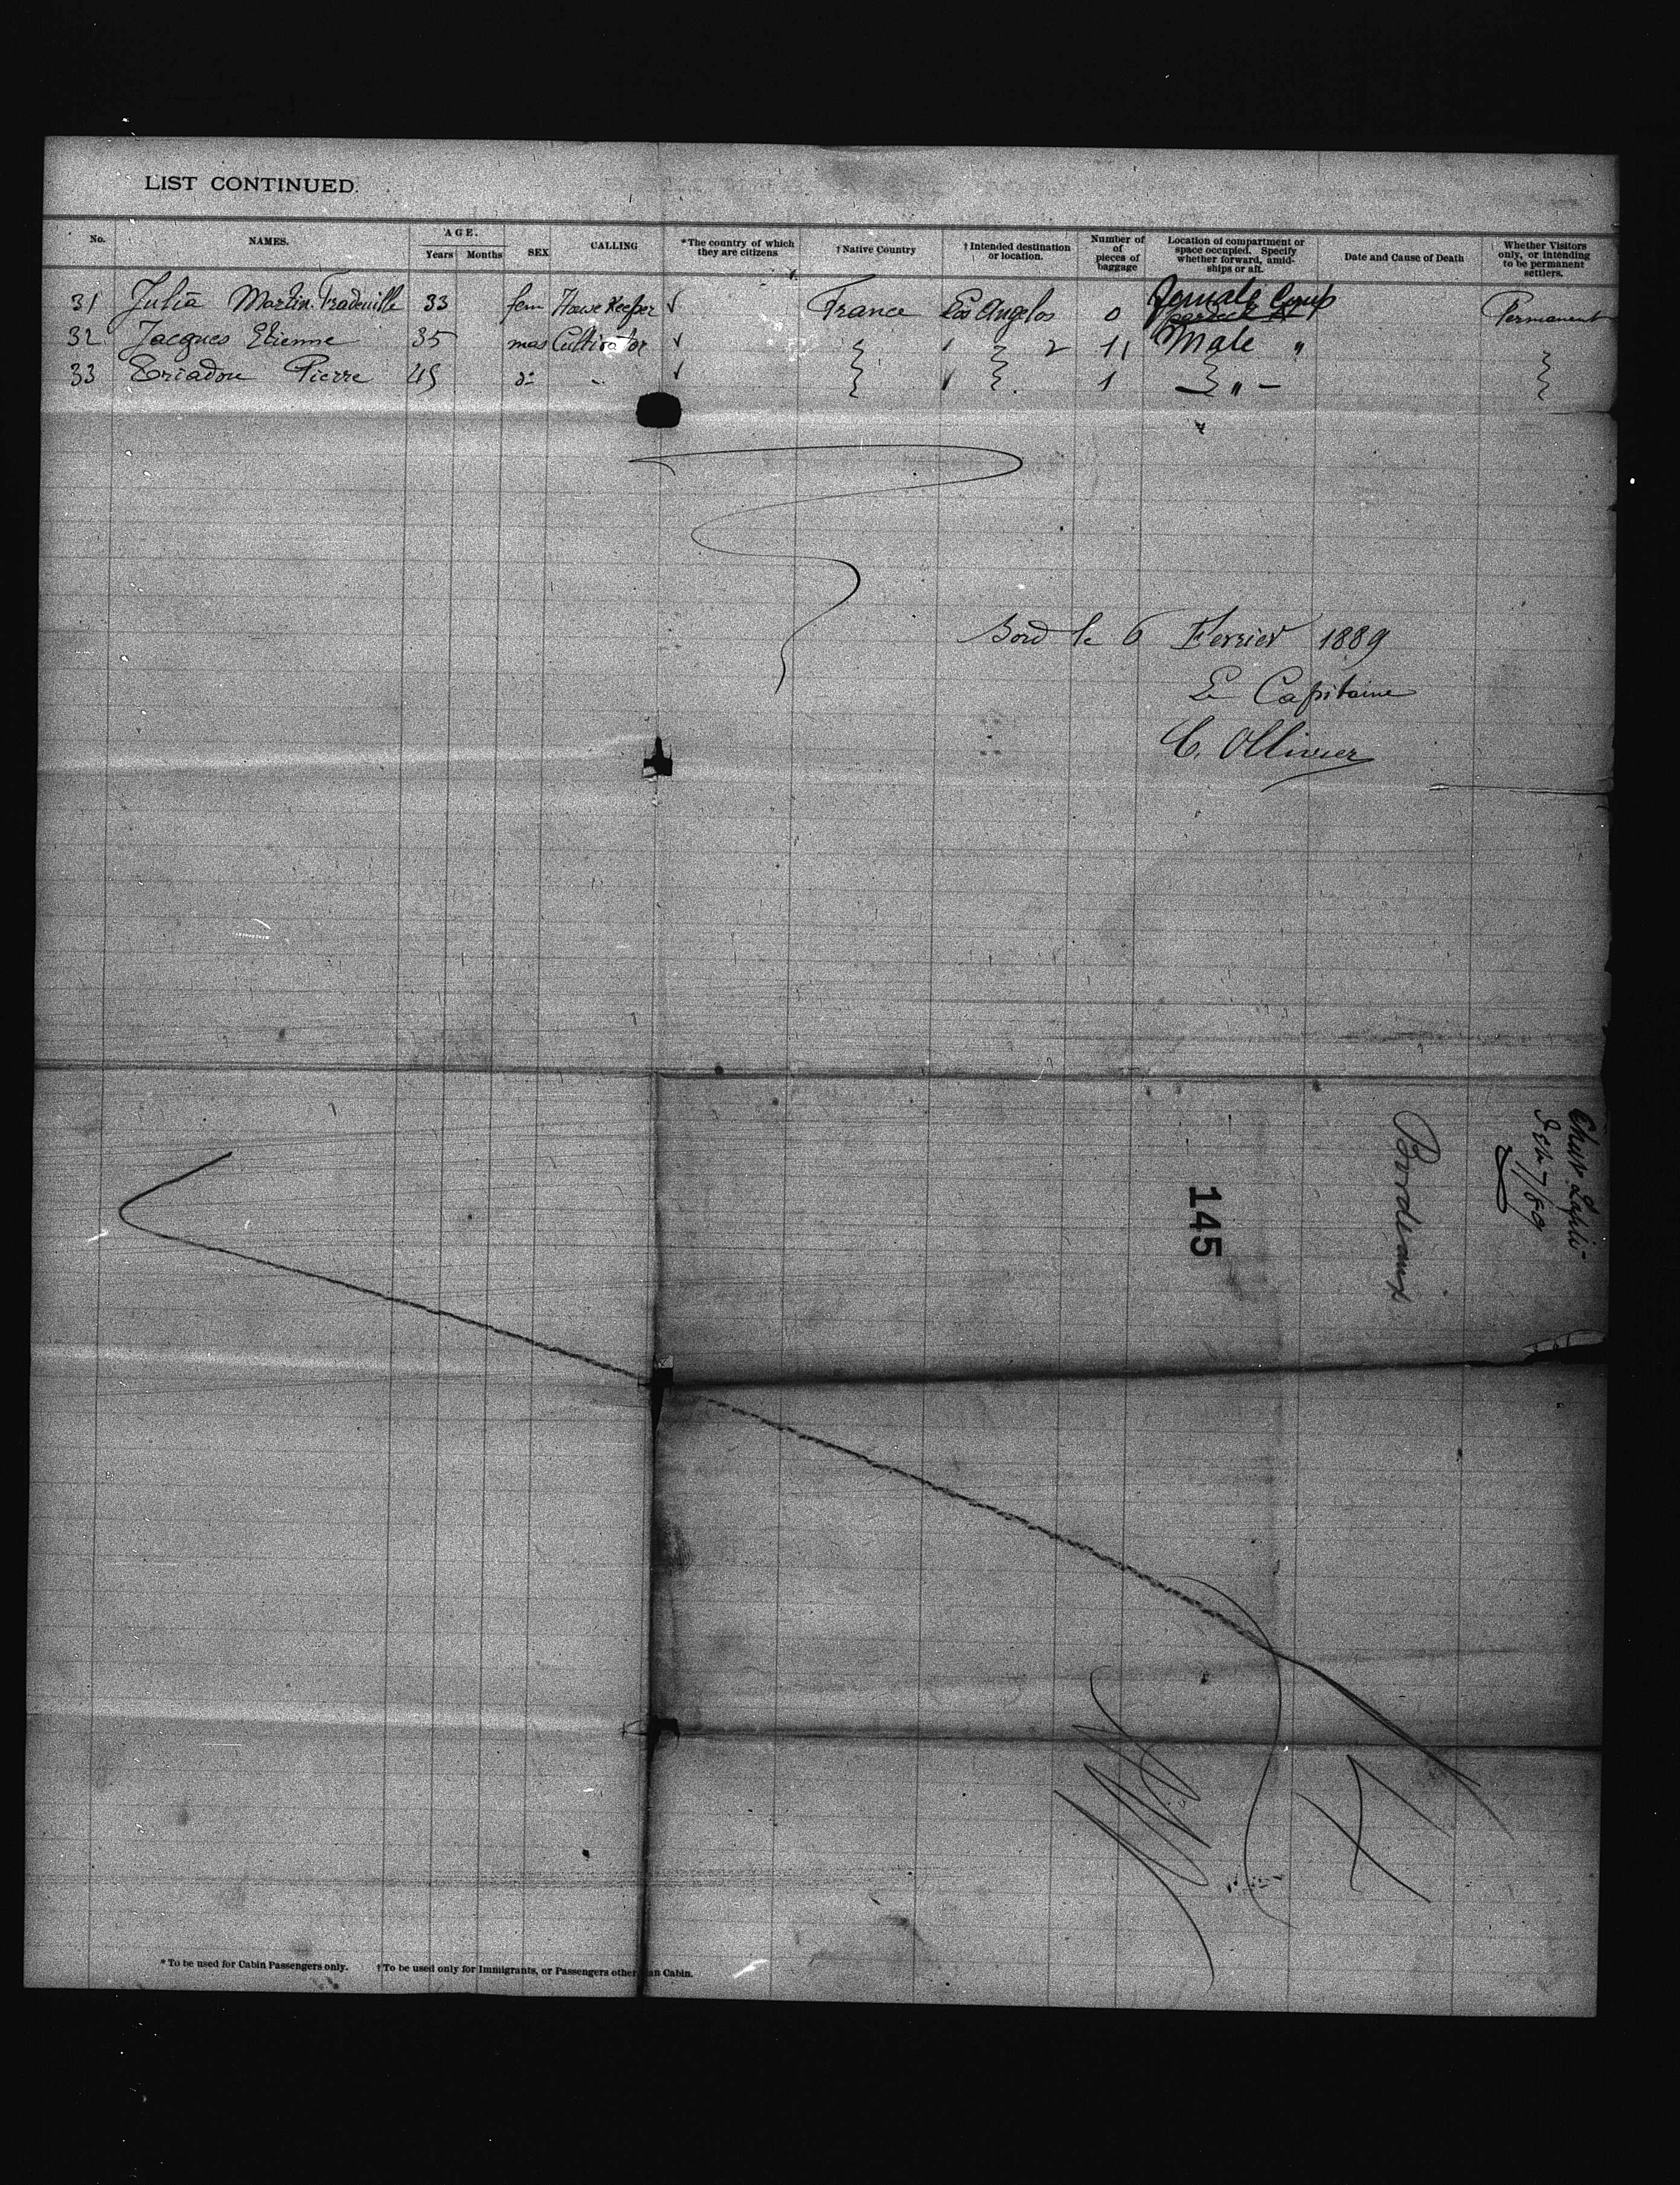 LIST CONTINUED.
No. NAMES. AGE. Years Months SEX CALLING *The country of which they are citizens †Native Country †Intended destination or location. Number of of pieces of baggage Location of compartment or space occupied. Specify whether forward, amidships or aft. Date and Cause of Death Whether Visitors only, or intending to be permanent settlers.
31 Julia Martin 33 fem House Keeper ✓ France Los Angelos 0 female Comp Permanent
32 Jacques Etienne 35 mas Cultivator ✓ 2 11 Male "
33 Triadou Pierre 45 do " ✓ 1 "
Bord le 6 Fevrier 1889
Le Capitaine
C. Ollivier
Feb 7/89
Bordeaux
145
* To be used for Cabin Passengers only. †To be used only for Immigrants, or Passengers other an Cabin.